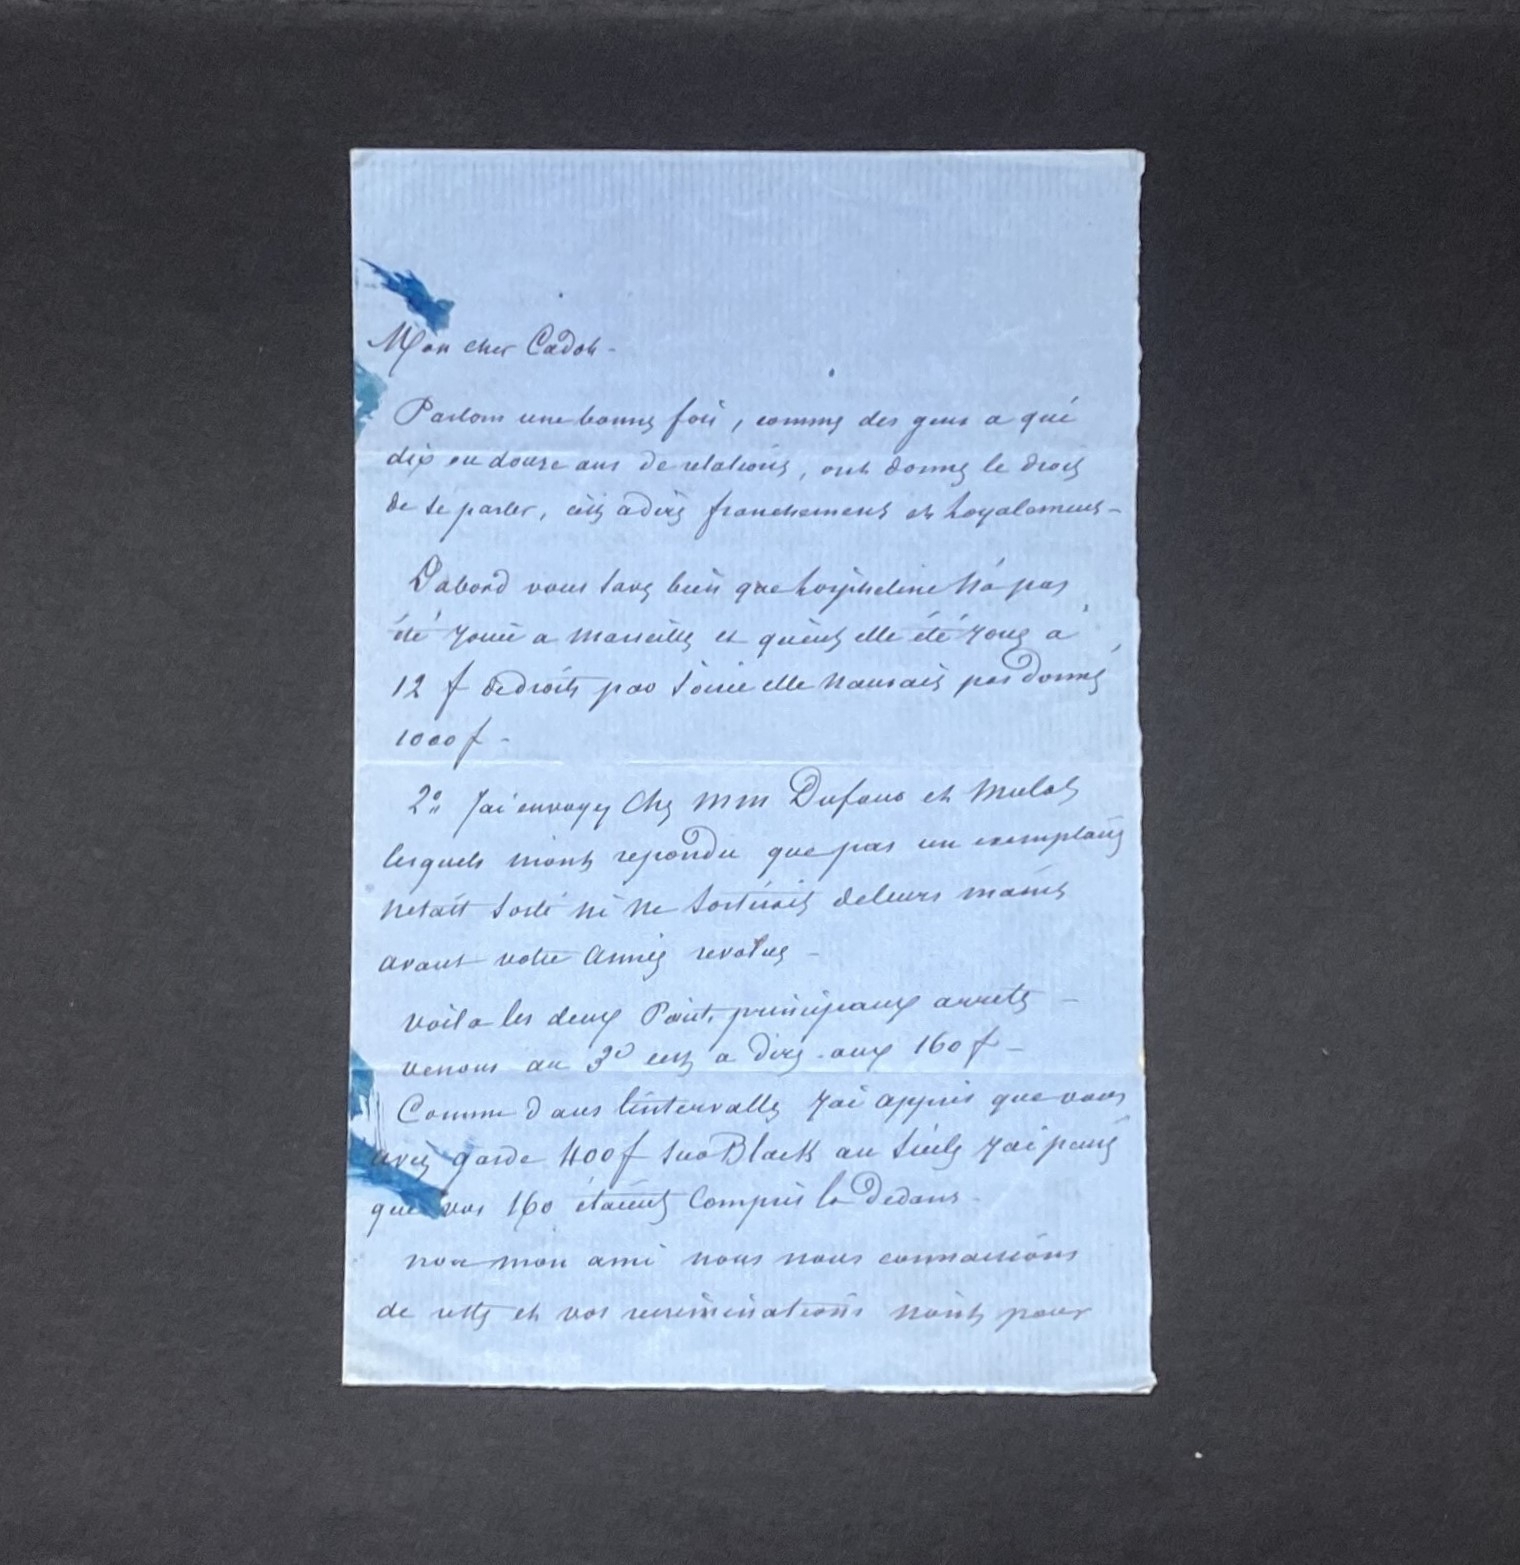 Mon cher Cadot -
Parlons une bonne fois, comme des gens a qui
dix ou douze ans de relations, ont donné le droit
de se parler, cest a dire franchement et loyalement -
Dabord vous savez bien que Lorpheline na pas
été jouée a Marseille et queut elle été jouée a
12 f de droits par soirée elle naurait pas donné
1000 f -
2° Jai envoyé chez mm Dufour et Mulat
lesquels mont repondu que pas un exemplaire
netait sorti ni ne sortirait de leurs mains
avant votre année revolue -
voila les deux Points principaux arretés -
venons au 3° cest a dire aux 160 f -
Comme dans lintervalle jai appris que vous
aviez gardé 400 f sur Black au Siècle jai pensé
que vos 160 étaient compris la dedans -
non mon ami nous nous connaissons
de reste et vos recriminations nont pour